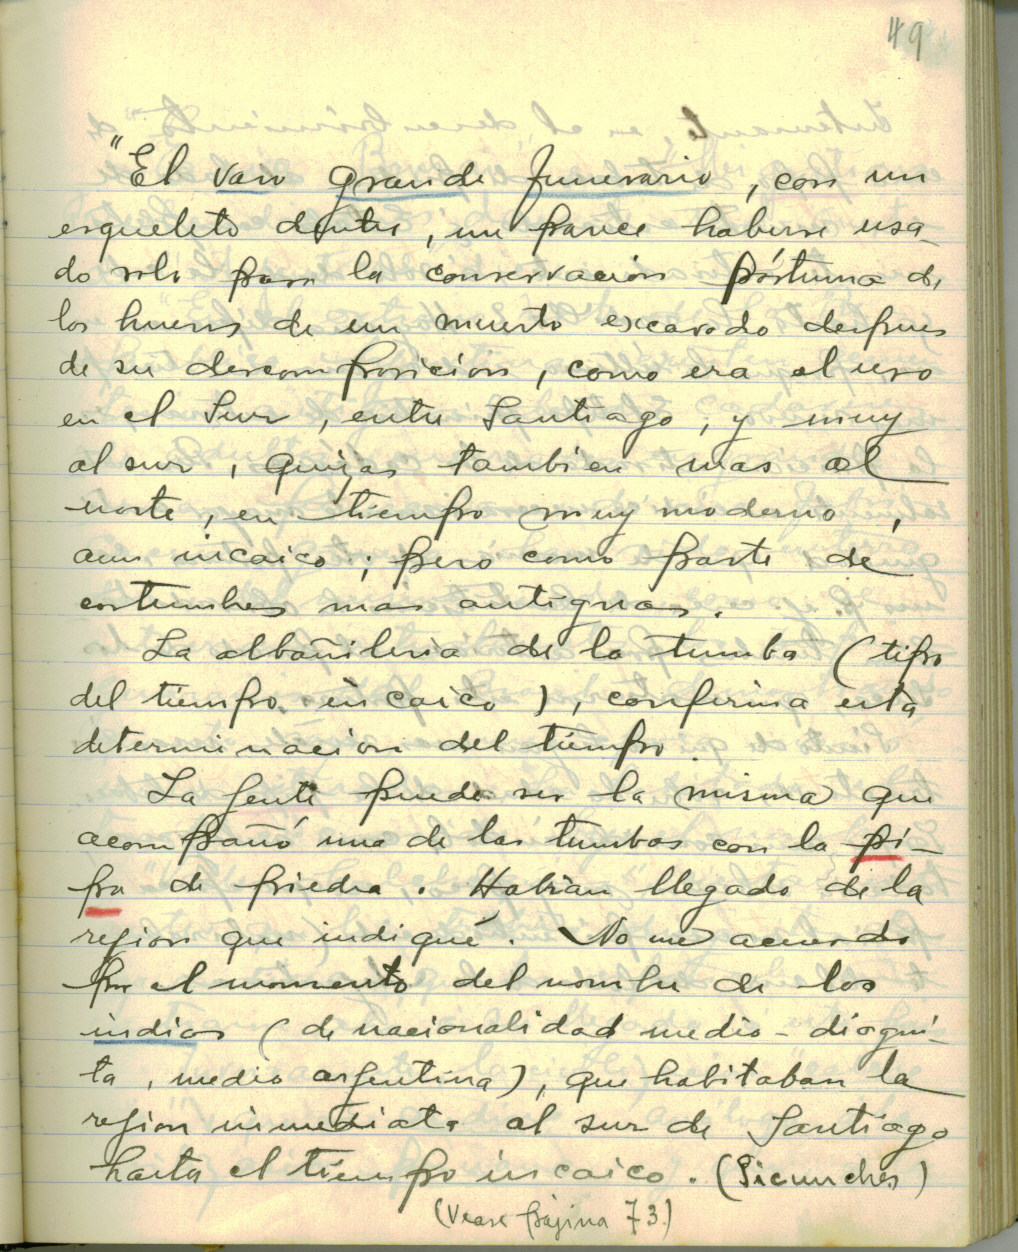 49
"El vaso grande funerario, con un
esqueleto dentro, me parece haberse usa-
do solo para la conservación póstuma de
los huesos de un muerto excavado despues
de su descomposición, como era el uso
en el Sur, entre Santiago, y muy
al sur, quizas tambien mas al
norte, en tiempo muy moderno,
aun incaico; pero como parte de
costumbres mas antiguas.
La albañileria de la tumba (tipo
del tiempo incaico), confirma esta
determinacion del tiempo.
La gente puede ser la misma que
acompañó una de las tumbas con la pi-
pa de piedra. Habian llegado de la
region que indiqué. No me acuerdo
por el momento del nombre de los
indios (de nacionalidad medio-diagui-
ta, medio argentina), que habitaban la
region inmediata al sur de Santiago
hasta el tiempo incaico. (Picunches)
(Vease página 73.)